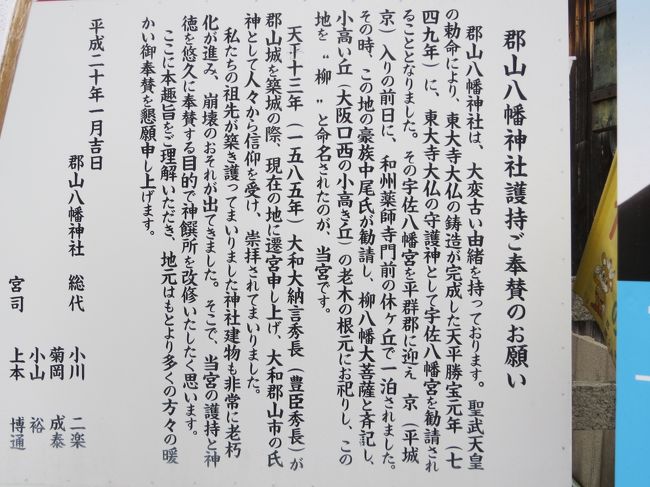 郡山八幡神社護持ご奉賛のお願い
郡山八幡神社は、大変古い由緒を持っております。聖武天皇
の勅命により、東大寺大仏の鋳造が完成した天平勝宝元年（七
四九年）に、東大寺大仏の守護神として宇佐八幡宮を勧請され
ることとなりました。その宇佐八幡宮を平群郡に迎え　京（平城
京）入りの前日に、和州薬師寺門前の休ヶ丘で一泊されました。
その時、この地の豪族中尾氏が勧請し、柳八幡大菩薩と斉記し、
小高い丘（大阪口西の小高き丘）の老木の根元にお祀りし、この
地を　“柳　”と命名されたのが、当宮です。
天平十三年（一五八五年）大和大納言秀長（豊臣秀長）が
郡山城を築城の際、現在の地に遷宮申し上げ、大和郡山市の氏
神として人々から信仰を受け、崇拝されてまいりました。
私たちの祖先が築き護ってまいりました神社建物も非常に老朽
化が進み、崩壊のおそれが出てきました。そこで、当宮の護持と神
徳を悠久に奉賛する目的で神饌所を改修いたしたく思います。
ここに本趣旨をご理解いただき、地元はもとより多くの方々の暖
かい御奉賛を懇願申し上げます。
平成二十年一月吉日
郡山八幡神社　総代　小川　二楽
菊岡　成泰
小山　裕
宮司　上本　博通